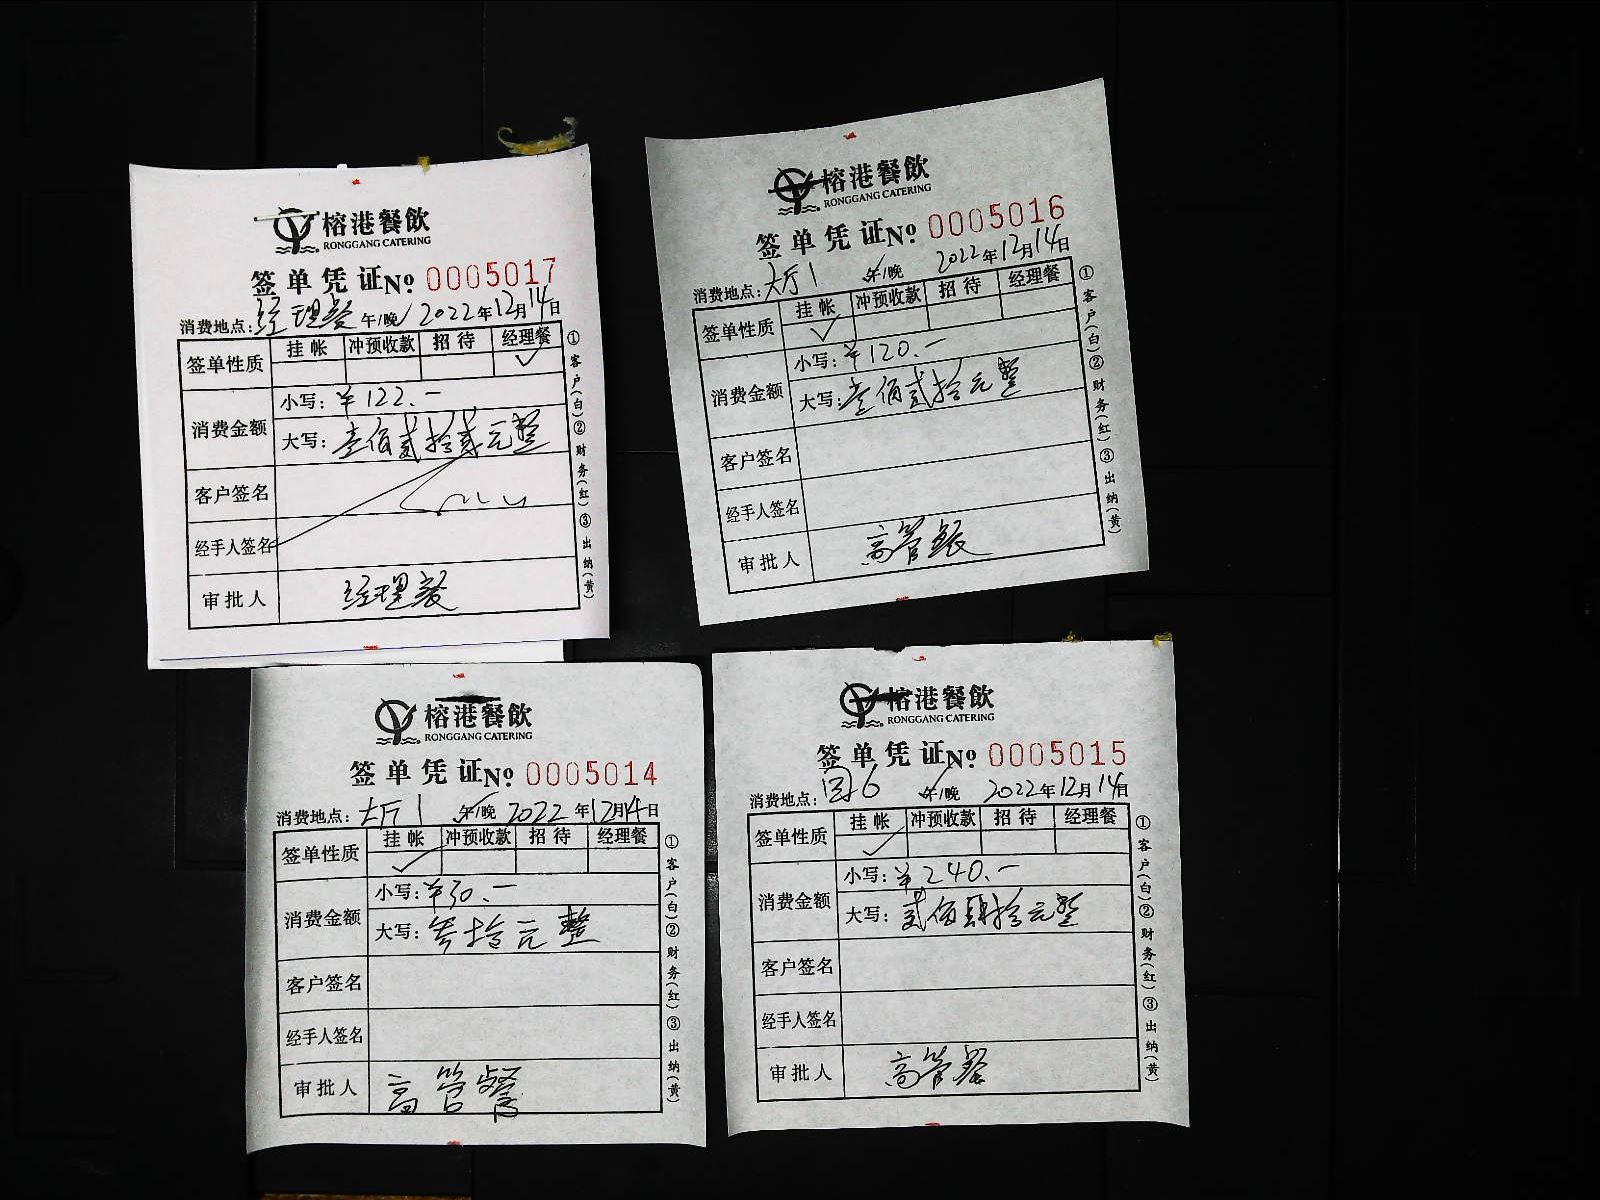 榕港餐飲
RONGGANG CATERING
签单凭证 No 0005017
消费地点: 经理餐 午/晚 2022年12月14日
签单性质 挂帐 冲预收款 招待 经理餐
✓
消费金额 小写: ¥122.-
大写: 壹佰贰拾贰元整
客户签名
经手人签名
审批人 经理餐
①客户(白)②财务(红)③出纳(黄)
榕港餐飲
RONGGANG CATERING
签单凭证 No 0005016
消费地点: 大厅1 午/晚 2022年12月14日
签单性质 挂帐 冲预收款 招待 经理餐
✓
消费金额 小写: ¥120.-
大写: 壹佰贰拾元整
客户签名
经手人签名
审批人 高管餐
①客户(白)②财务(红)③出纳(黄)
榕港餐飲
RONGGANG CATERING
签单凭证 No 0005014
消费地点: 大厅1 午/晚 2022年12月14日
签单性质 挂帐 冲预收款 招待 经理餐
✓
消费金额 小写: ¥30.-
大写: 叁拾元整
客户签名
经手人签名
审批人 高管餐
①客户(白)②财务(红)③出纳(黄)
榕港餐飲
RONGGANG CATERING
签单凭证 No 0005015
消费地点: 6 午/晚 2022年12月14日
签单性质 挂帐 冲预收款 招待 经理餐
✓
消费金额 小写: ¥240.-
大写: 贰佰肆拾元整
客户签名
经手人签名
审批人 高管餐
①客户(白)②财务(红)③出纳(黄)